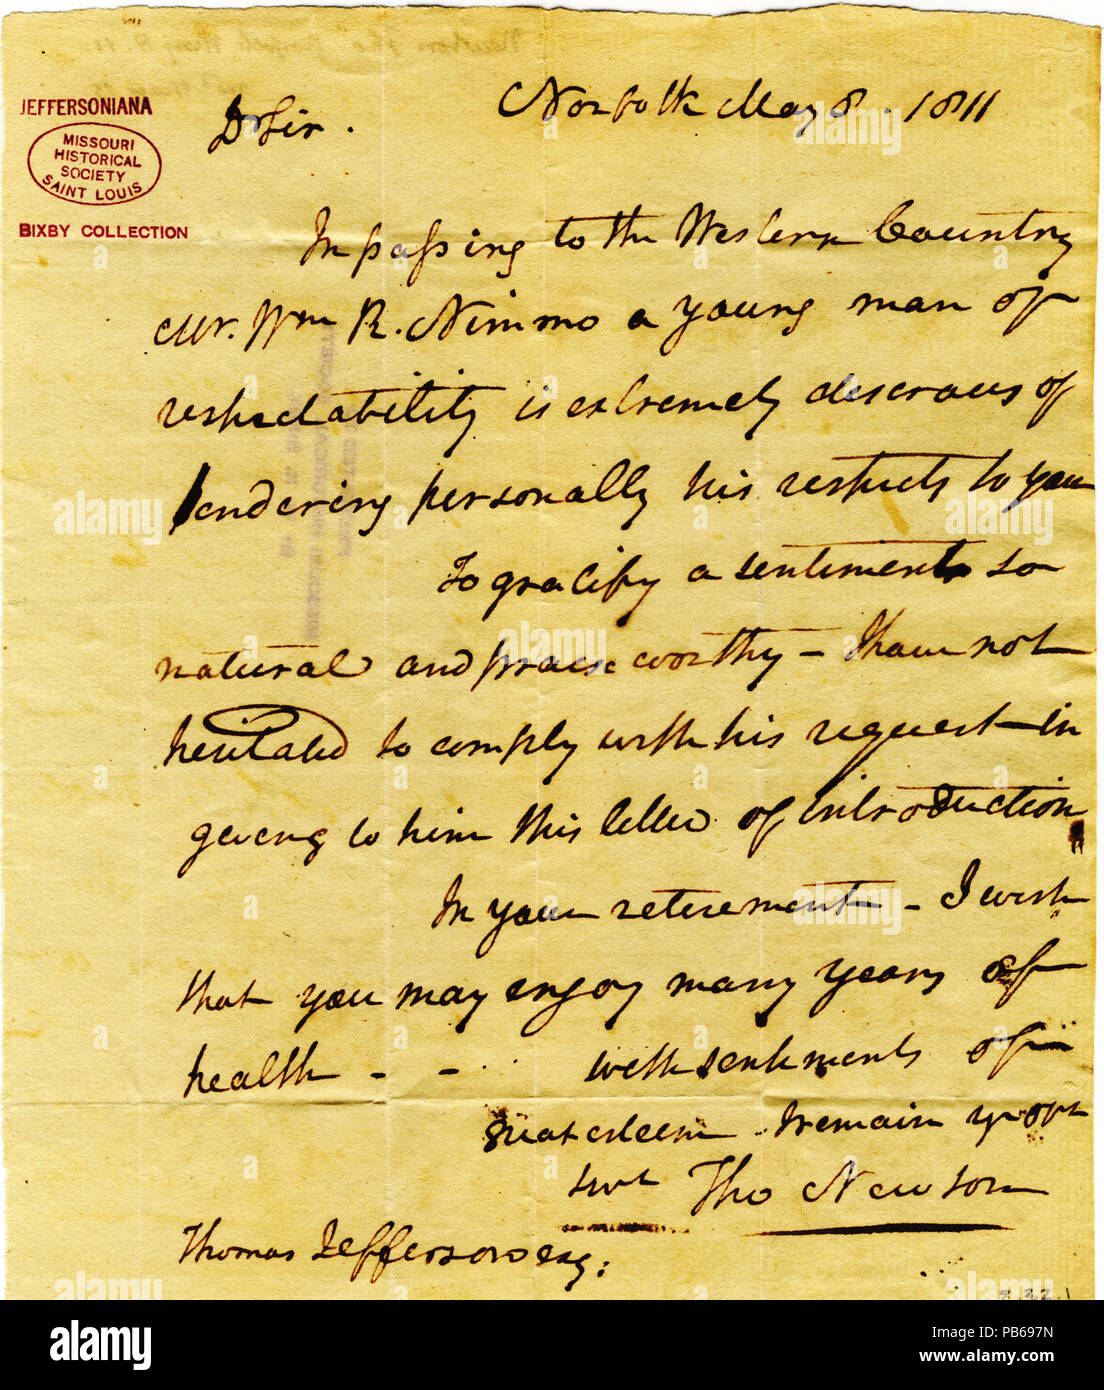 JEFFERSONIANA
MISSOURI
HISTORICAL
SOCIETY
SAINT LOUIS
BIXBY COLLECTION
Norfolk May 8. 1811
Dr Sir.
In passing to the Western Country
Mr. Wm R. Nimmo a young man of
respectability is extremely deserous of
tendering personally his respects to you
To gratify a sentiment so
natural and praise worthy – I have not
hesitated to comply with his request in
giveng to him this letter of introduction
In your retirement – I wish
that you may enjoy many years of
health – – with sentiments of
great esteem I remain yr obt
svt Tho Newton
Thomas Jefferson esq:
alamy
Image ID: PB697N
www.alamy.com